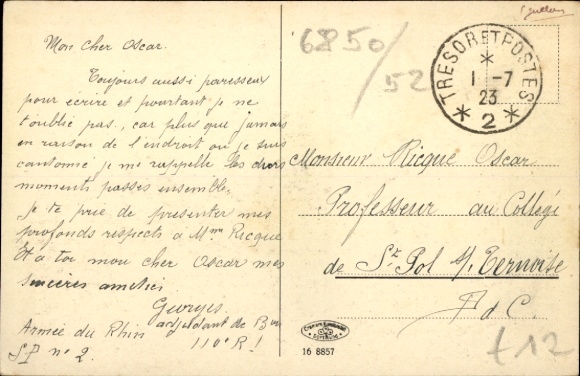 Mon cher Oscar.
Toujours aussi paresseux
pour écrire et pourtant je ne
t'oublie pas, car plus que jamais
en raison de l'endroit où je suis
cantonné je me rappelle les chers
moments passés ensemble.
je te prie de présenter mes
profonds respects à Mme Ricque
Et à toi mon cher Oscar mes
sincères amitiés
Georges
adjudant de Bon
110e R!
Armée du Rhin
SP n° 2.
6850/52
TRESOR ET POSTES
1-7
23
* 2 *
Monsieur Ricque Oscar
Professeur au Collège
de St Pol s/ Ternoise
P d C.
16 8857
t12